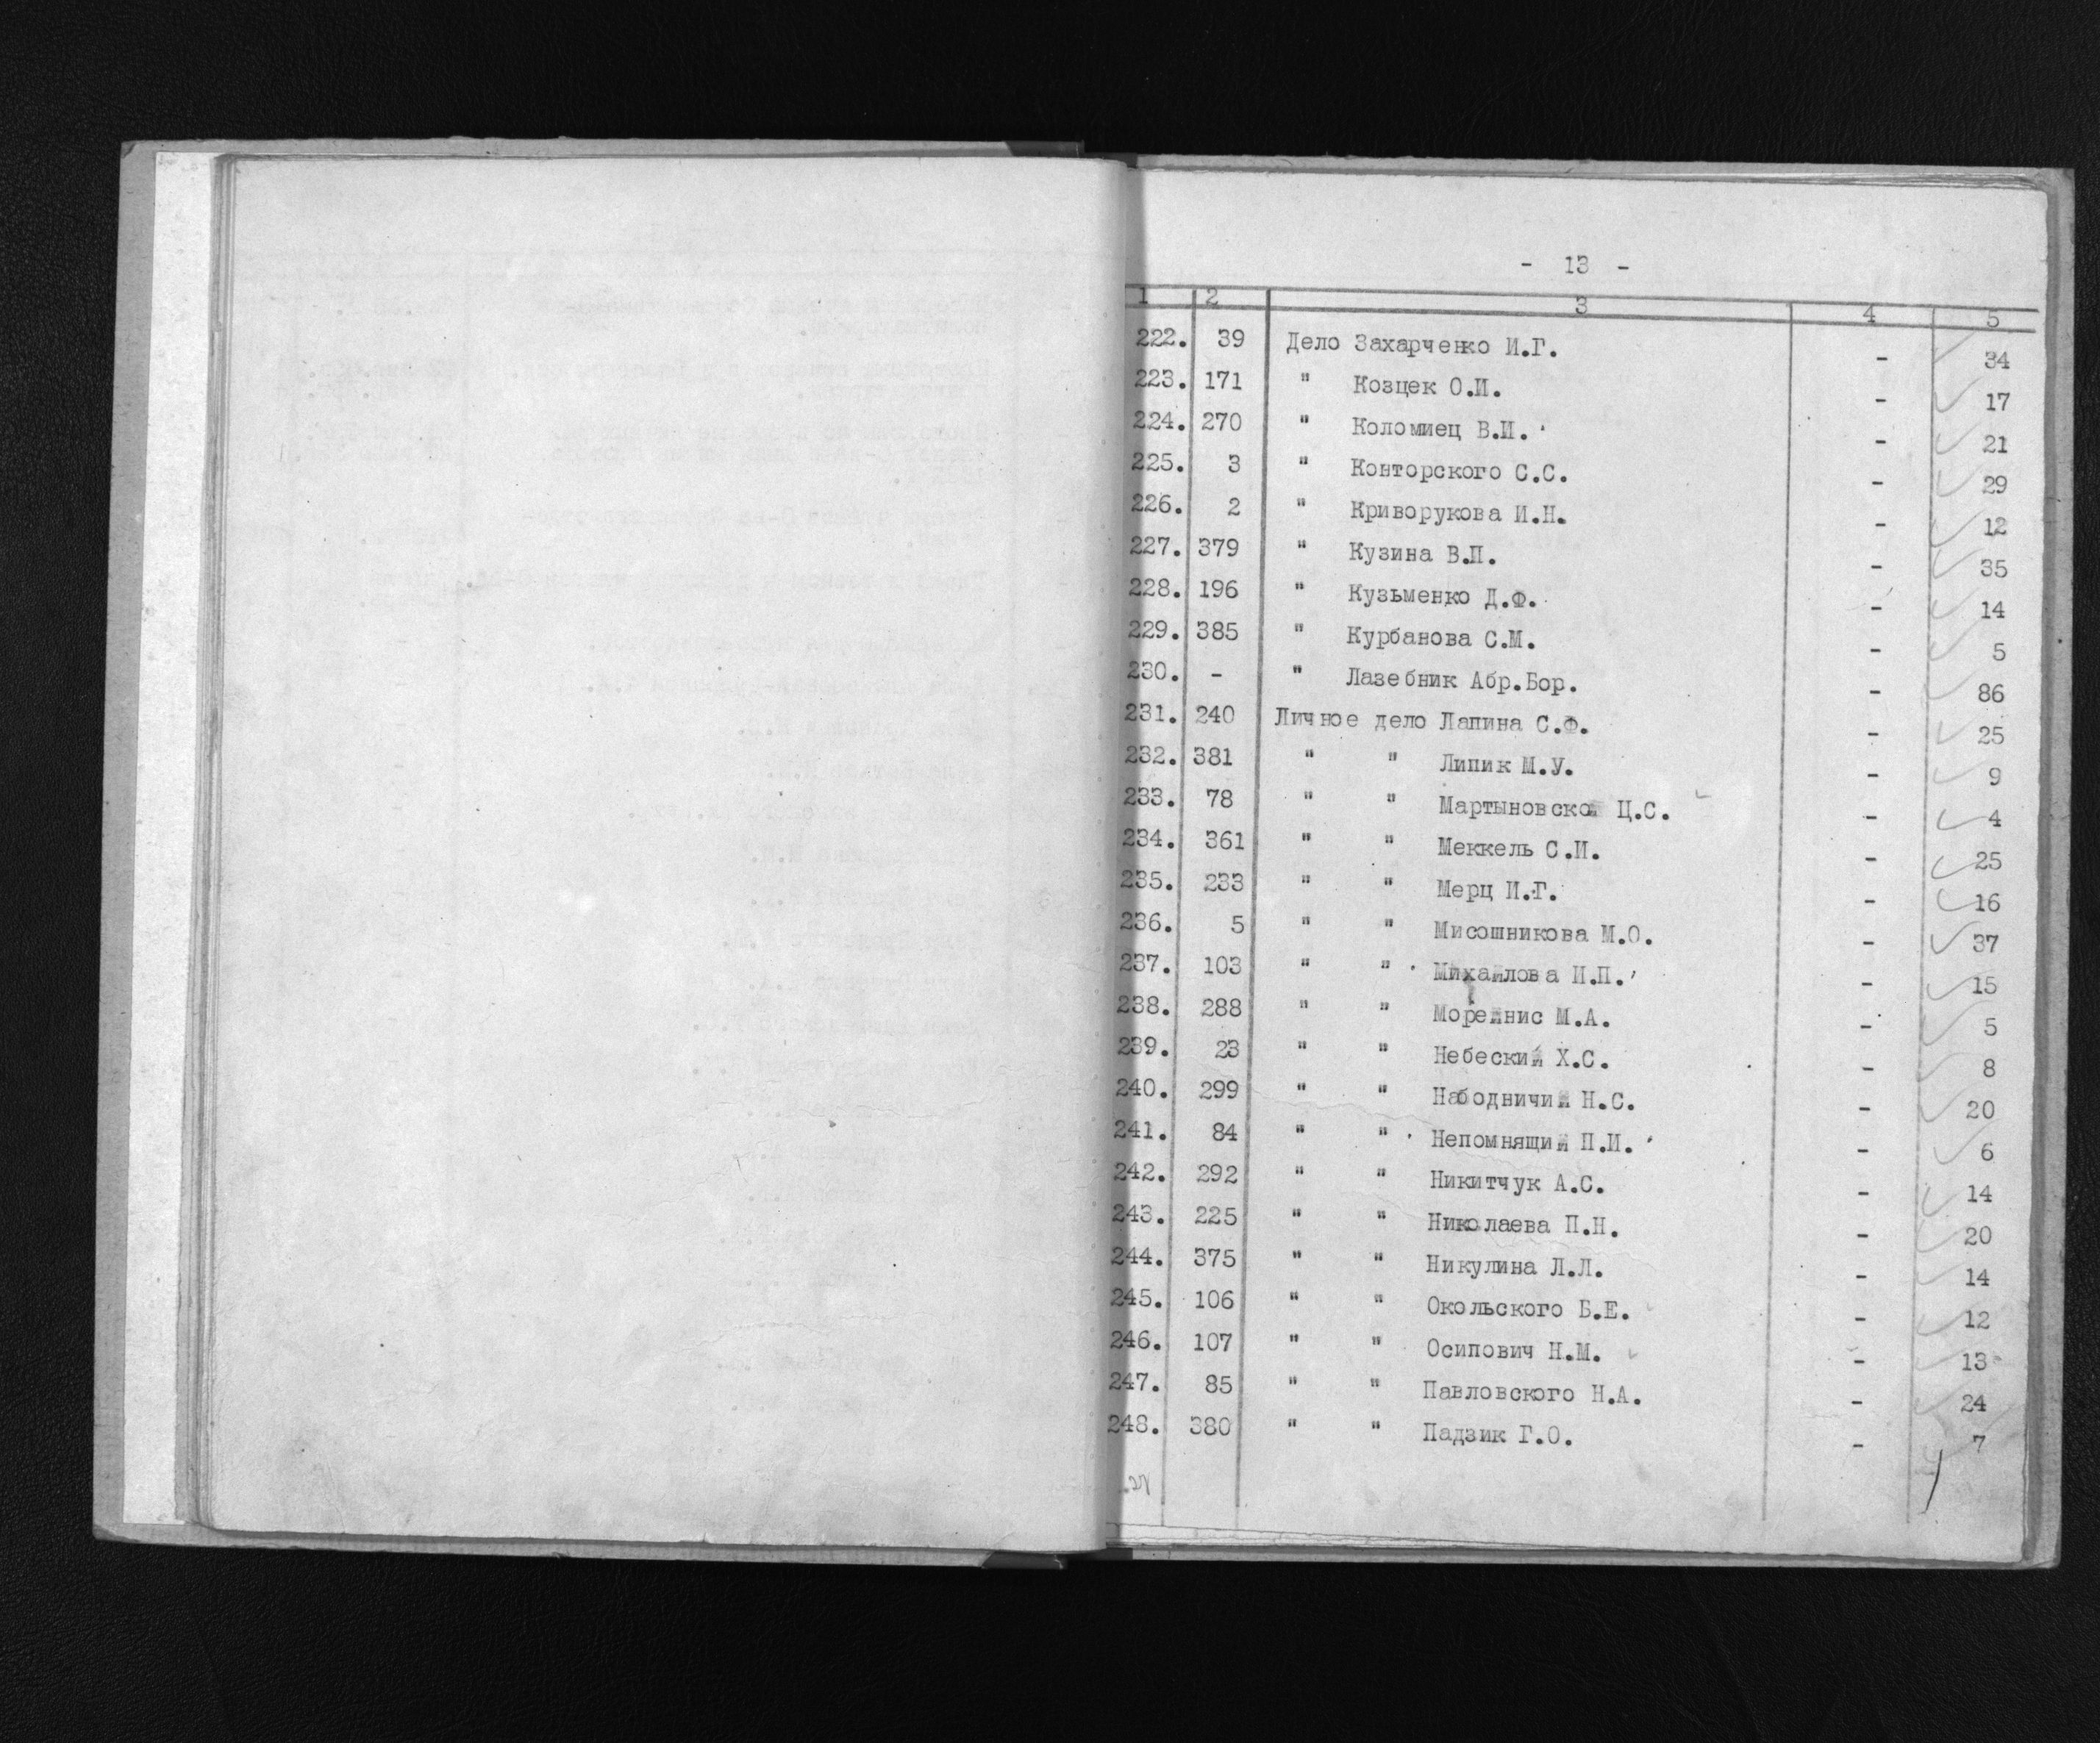 - 13 -
1 2 3 4 5
222. 39 Дело Захарченко И.Г. - 34
223. 171 " Козцек О.И. - 17
224. 270 " Коломиец В.И. - 21
225. 3 " Конторского С.С. - 29
226. 2 " Криворукова И.Н. - 12
227. 379 " Кузина В.П. - 35
228. 196 " Кузьменко Д.Ф. - 14
229. 385 " Курбанова С.М. - 5
230. - " Лазебник Абр.Бор. - 86
231. 240 Личное дело Лапина С.Ф. - 25
232. 381 " " Липик М.У. - 9
233. 78 " " Мартыновской Ц.С. - 4
234. 361 " " Меккель С.И. - 25
235. 233 " " Мерц И.Г. - 16
236. 5 " " Мисошникова М.О. - 37
237. 103 " " Михайлова И.П. - 15
238. 288 " " Морейнис М.А. - 5
239. 23 " " Небеский Х.С. - 8
240. 299 " " Набодничий Н.С. - 20
241. 84 " " Непомнящий П.И. - 6
242. 292 " " Никитчук А.С. - 14
243. 225 " " Николаева П.Н. - 20
244. 375 " " Никулина Л.Л. - 14
245. 106 " " Окольского Б.Е. - 12
246. 107 " " Осипович Н.М. - 13
247. 85 " " Павловского Н.А. - 24
248. 380 " " Падзик Г.О. - 7